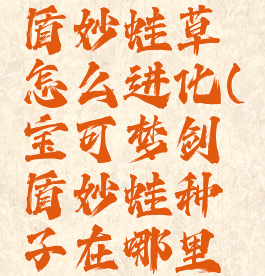 盾妙蛙草
怎么进化(
宝可梦剑
盾妙蛙种
子在哪里